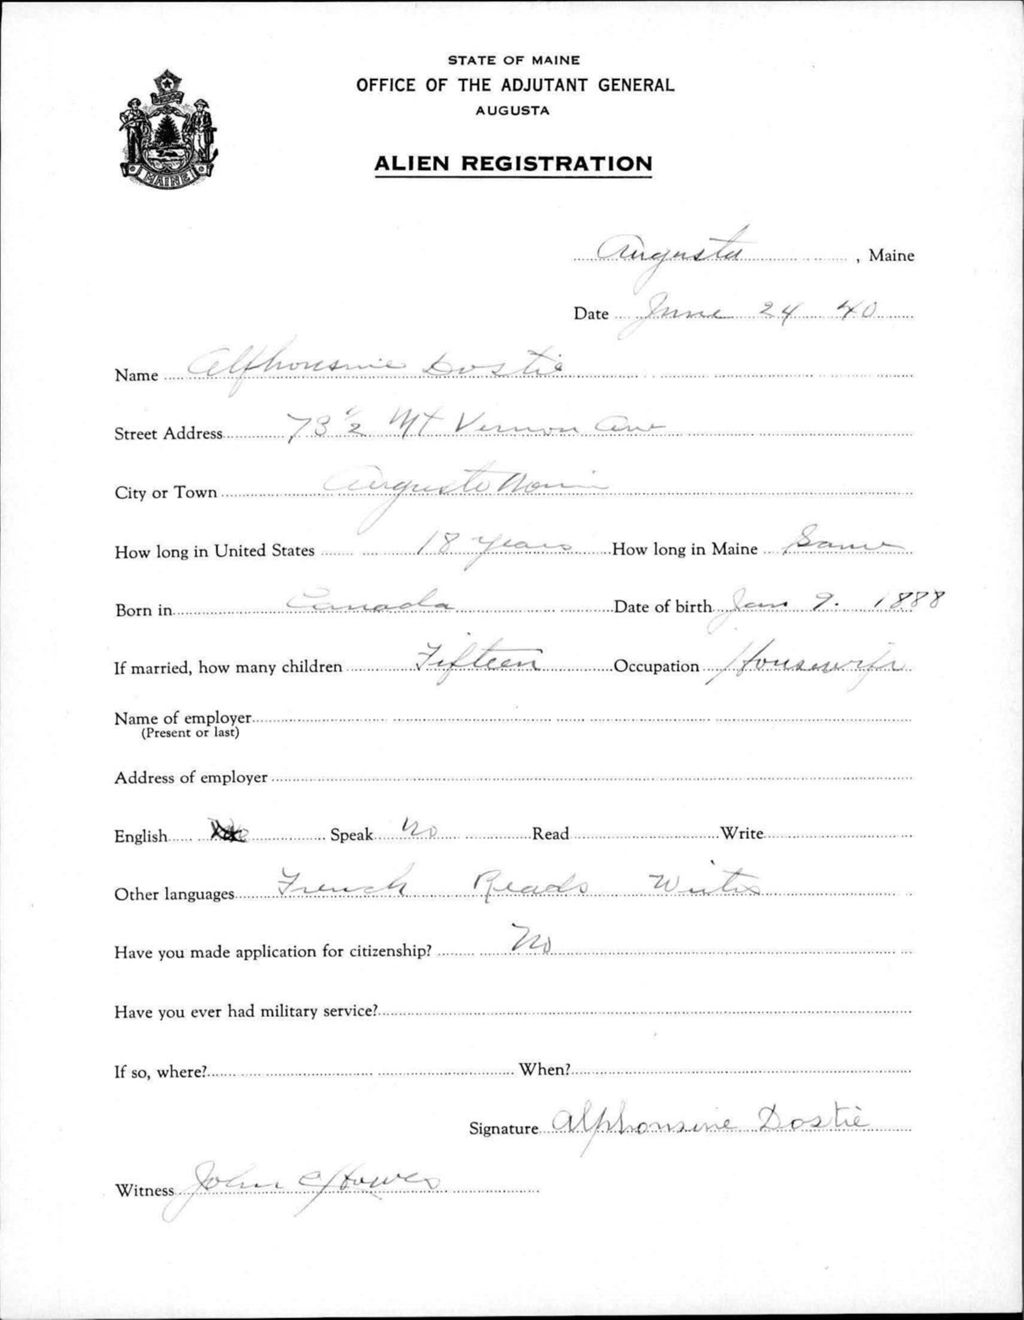 STATE OF MAINE
OFFICE OF THE ADJUTANT GENERAL
AUGUSTA
MAINE
ALIEN REGISTRATION
Augusta, Maine
Date June 24 40
Name Alphonsine Dostie
Street Address 73 1/2 Mt Vernon Ave
City or Town Augusta Maine
How long in United States 18 years How long in Maine Same
Born in Canada Date of birth Jan 9. 1888
If married, how many children Fifteen Occupation Housewife
Name of employer
(Present or last)
Address of employer
English Speak No Read Write
Other languages French Reads Writes
Have you made application for citizenship? No
Have you ever had military service?
If so, where? When?
Signature Alphonsine Dostie
Witness John C Howes